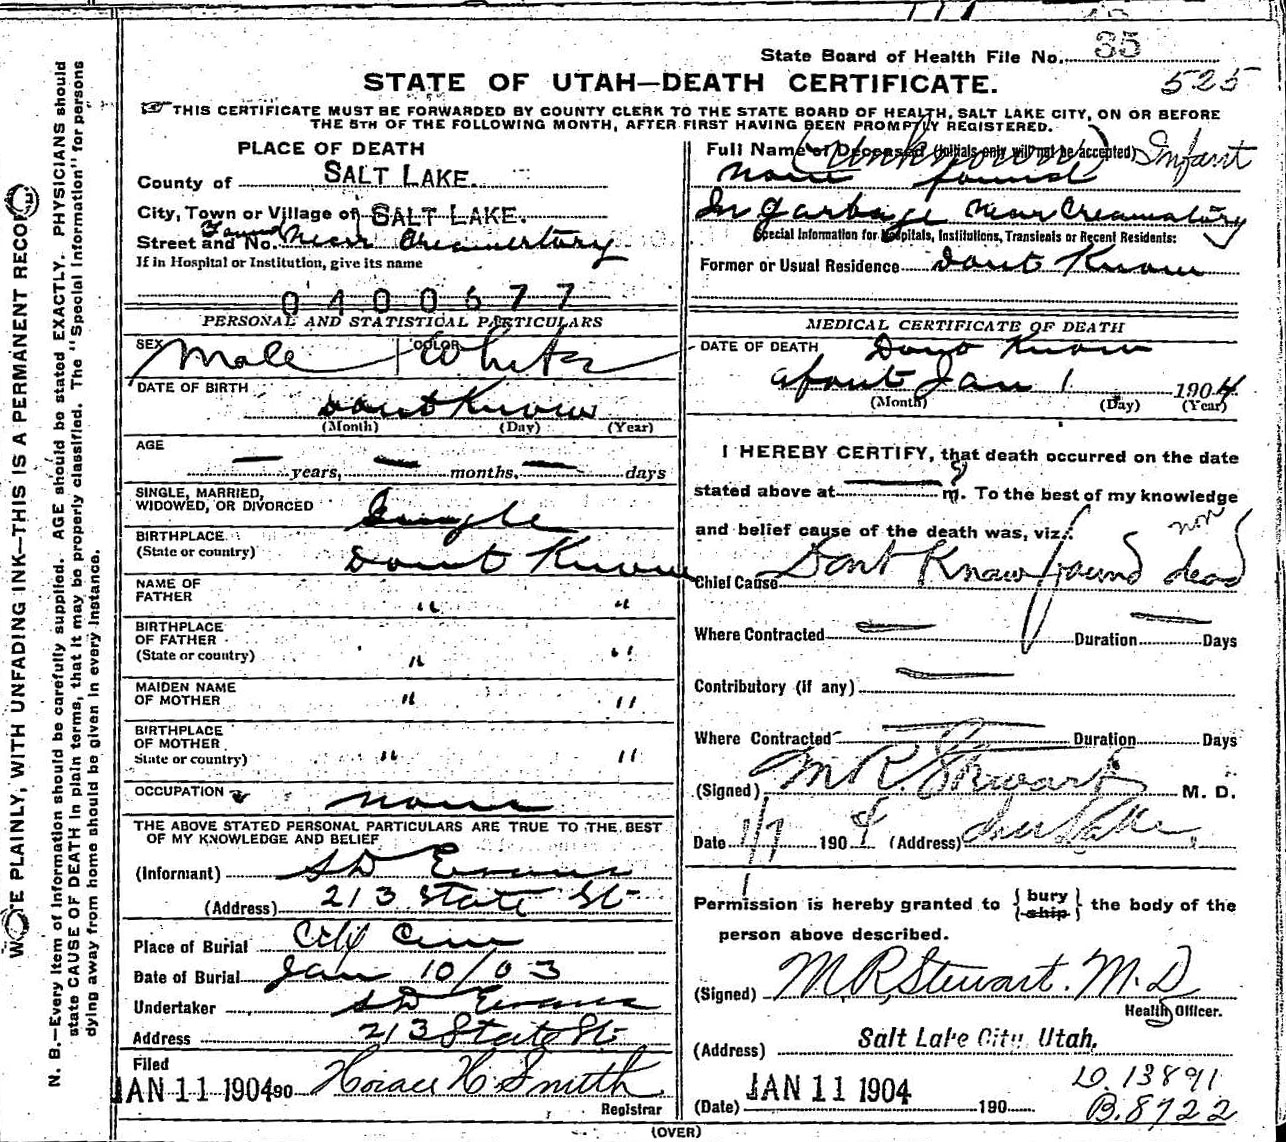 State Board of Health File No. 35
525
STATE OF UTAH—DEATH CERTIFICATE.
☞ THIS CERTIFICATE MUST BE FORWARDED BY COUNTY CLERK TO THE STATE BOARD OF HEALTH, SALT LAKE CITY, ON OR BEFORE
THE 5TH OF THE FOLLOWING MONTH, AFTER FIRST HAVING BEEN PROMPTLY REGISTERED.
PLACE OF DEATH
County of SALT LAKE.
City, Town or Village of SALT LAKE.
Street and No. Found Near Creamertory
If in Hospital or Institution, give its name
0400677
PERSONAL AND STATISTICAL PARTICULARS
SEX Male COLOR White
DATE OF BIRTH
Dont Know
(Month) (Day) (Year)
AGE
— years, — months, — days
SINGLE, MARRIED,
WIDOWED, OR DIVORCED Single
BIRTHPLACE
(State or country) Dont Know
NAME OF
FATHER " "
BIRTHPLACE
OF FATHER
(State or country) " "
MAIDEN NAME
OF MOTHER " "
BIRTHPLACE
OF MOTHER
State or country) " "
OCCUPATION none
THE ABOVE STATED PERSONAL PARTICULARS ARE TRUE TO THE BEST
OF MY KNOWLEDGE AND BELIEF
(Informant) S D Evans
(Address) 213 State St
Place of Burial City Cem
Date of Burial Jan 10/03
Undertaker S D Evans
Address 213 State St
Filed
JAN 11 1904 90 Horace H Smith
Registrar
Full Name of Deceased (Initials only will not be accepted) (Unknown) Infant
None found
In garbage near Creamatory
Special Information for Hospitals, Institutions, Transients or Recent Residents:
Former or Usual Residence Dont Know
MEDICAL CERTIFICATE OF DEATH
DATE OF DEATH Dont Know
about Jan 1 1904
(Month) (Day) (Year)
I HEREBY CERTIFY, that death occurred on the date
stated above at — ? m. To the best of my knowledge
and belief cause of the death was, viz.:
Chief Cause Dont Know found dead
Where Contracted — Duration — Days
Contributory (if any) —
Where Contracted — Duration Days
(Signed) M R. Stewart M. D.
Date 1/7 1904 (Address)
Permission is hereby granted to { bury ship } the body of the
person above described.
(Signed) M. R. Stewart. M. D
Health Officer.
(Address) Salt Lake City, Utah.
(Date) JAN 11 1904 190
D. 13891
B. 8722
(OVER)
WRITE PLAINLY, WITH UNFADING INK—THIS IS A PERMANENT RECORD
N. B.—Every item of information should be carefully supplied. AGE should be stated EXACTLY. PHYSICIANS should
state CAUSE OF DEATH in plain terms, that it may be properly classified. The "Special Information" for persons
dying away from home should be given in every instance.